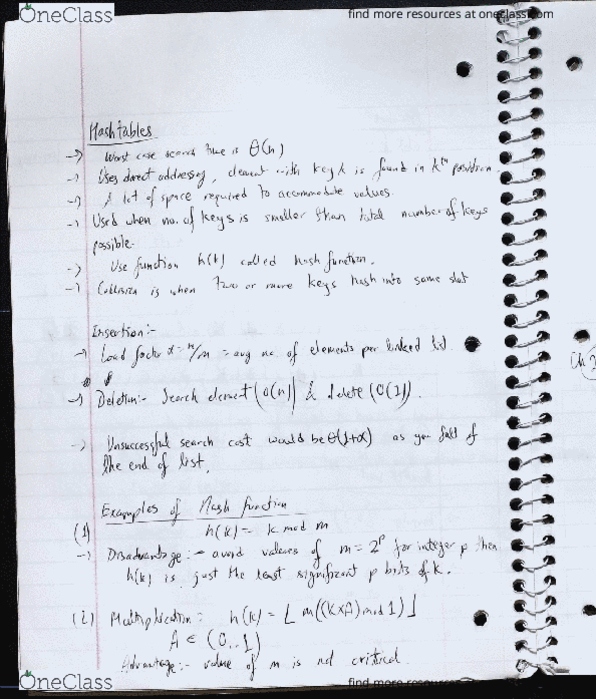 OneClass
find more resources at oneclass.com
Hashtables
→ Worst case search time is Θ(n)
→ Uses direct addressing, element with key k is found in kth position.
→ A lot of space required to accommodate values.
→ Used when no. of keys is smaller than total number of keys
possible.
→ Use function h(k) called hash function.
→ Collision is when two or more keys hash into same slot
Insertion:-
→ Load factor α = n/m = avg no. of elements per linked list.
→ Deletion:- Search element (O(n)) & delete (O(1)).
→ Unsuccessful search cost would be Θ(1+α) as you fall of
the end of list.
Examples of Hash function
(1) h(k) = k mod m
→ Disadvantage:- avoid values of m = 2^p for integer p then
h(k) is just the least significant p bits of k.
(2) Multiplication:- h(k) = ⌊ m((k×A) mod 1) ⌋
A ∈ (0..1)
Advantage:- value of m is not critical.
OneClass
find more resources at oneclass.com